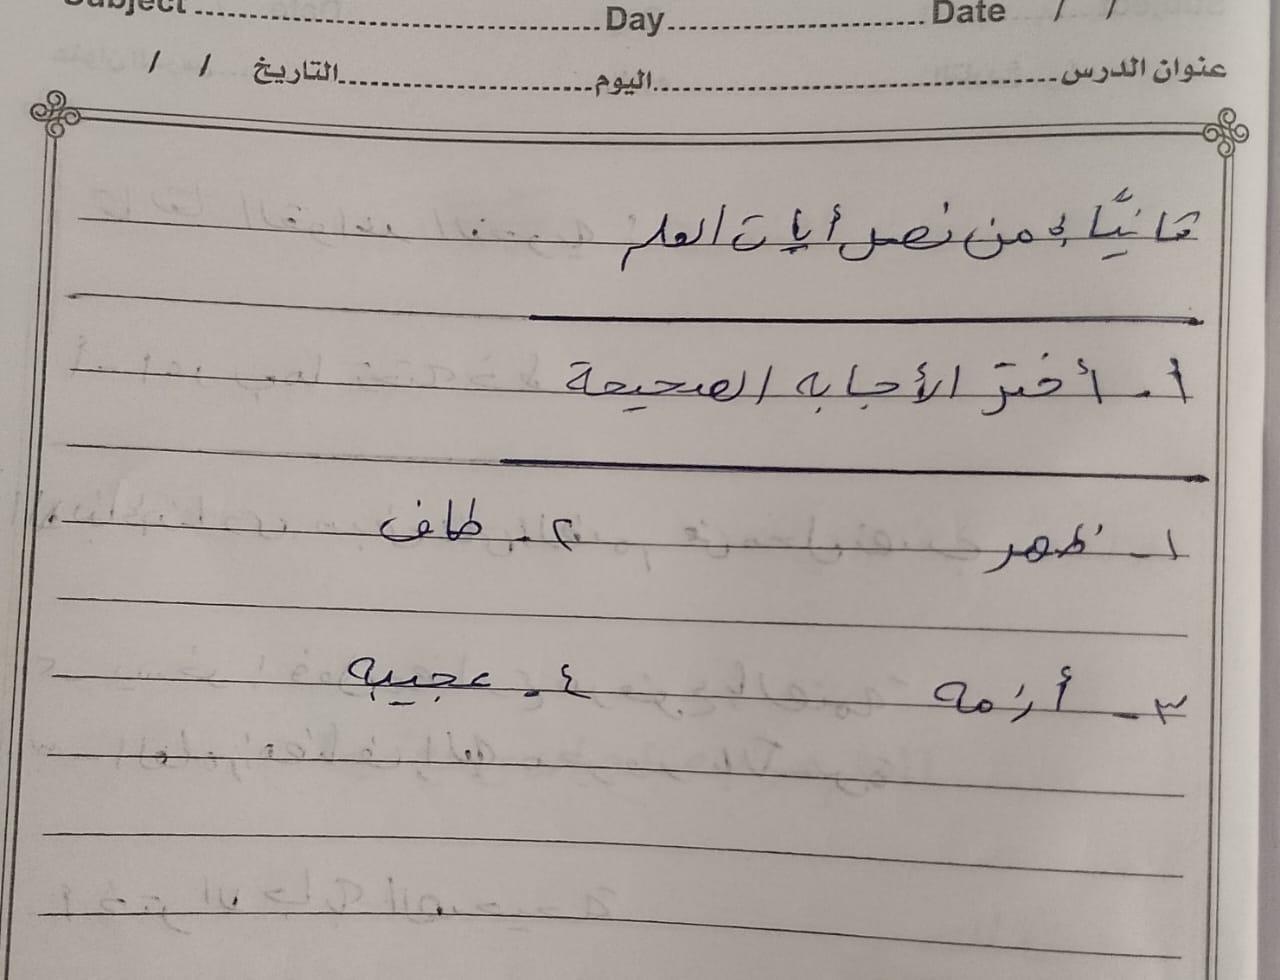 Subject ........ Day ........ Date / /
عنوان الدرس ........ اليوم ........ التاريخ / /
ثانيًا: من نص أيات العلم
أ - أختر الأجابه الصحيحة
١ - ظهر ٢ - طاف
٣ - أزمه ٤ - عجيبه